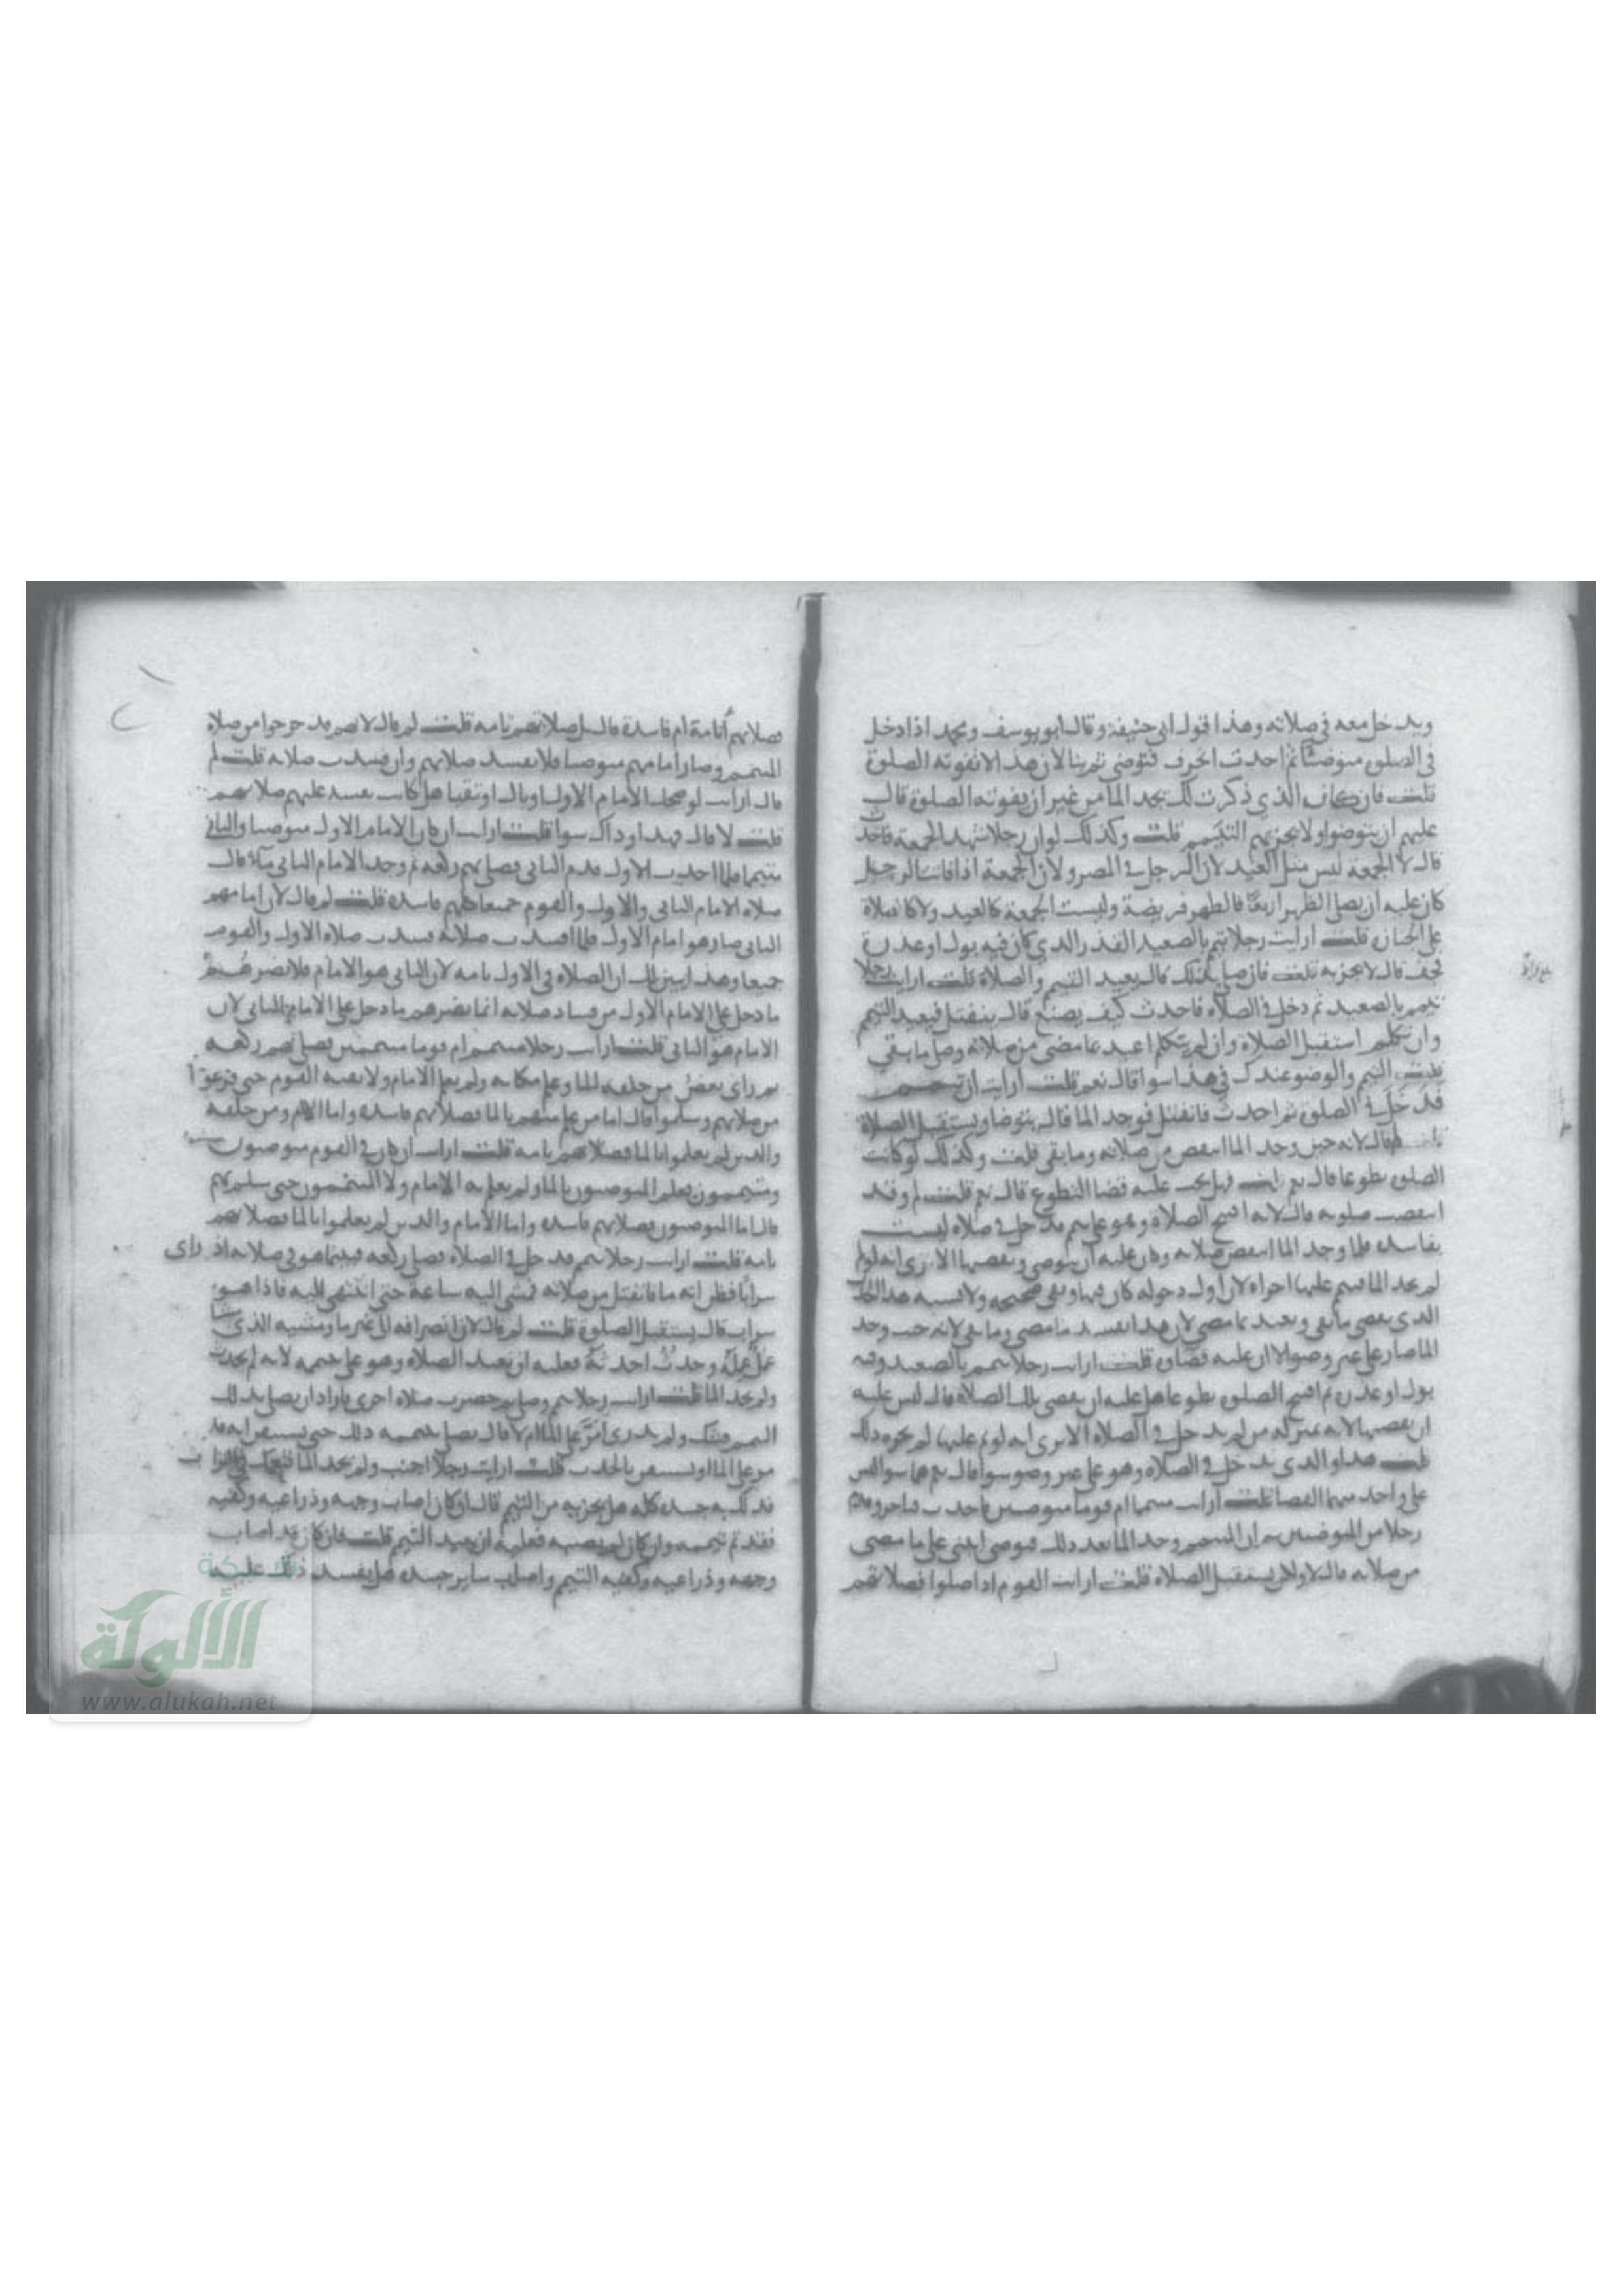 ويدخل معه في صلاته وهذا قول ابي حنيفة وقال ابو يوسف ومحمد اذا دخل
في الصلوة متوضئا ثم احدث انحرف فتوضى ثم بنا لان هذا لا تفوته الصلوة
قلت فان كان الذي ذكرت لك يجد الما من غير ان يفوته الصلوة قال
عليهم ان يتوضوا ولا يجزيهم التيمم قلت وكذلك لو ان رجلا شهد الجمعة فاحدث
قال لا الجمعة ليس مثل العيد لان الرجل في المصر ولان الجمعة اذا فاتت الرجل
كان عليه ان يصلي الظهر اربعا فالظهر فريضة وليست الجمعة كالعيد ولا كالصلاة
على الجنازة قلت ارايت رجلا يتيمم بالصعيد القذر الذي كان فيه بول او عذرة
فجف قال لا يجزيه قلت فان صلى بذلك قال يعيد التيمم والصلاة قلت ارايت رجلا
تيمم بالصعيد ثم دخل في الصلاة فاحدث كيف يصنع قال ينفتل فيعيد التيمم
وان تكلم استقبل الصلاة وان لم يتكلم اعتد بما مضى من صلاته وصلى ما بقي
قلت التيمم والوضو عندك في هذا سوا قال نعم قلت ارايت ان تيمم
فدخل في الصلوة ثم احدث فانفتل فوجد الما قال يتوضا ويستقبل الصلاة
قلت لم قال لانه حين وجد الما انتقض من صلاته وما بقي قلت وكذلك لو كانت
الصلوة تطوعا قال نعم قلت فهل يجب عليه قضا التطوع قال نعم قلت لم وقد
انتقضت صلوته قال لانه افتتح الصلاة وهو على تيمم فدخل في صلاة ليست
بفاسدة فلما وجد الما انتقض صلاته وكان عليه ان يتوضى ويقضيها الا ترى انه لو تم
لم يجد الما فتمم عليها اجزاه لان اول دخوله كان فيها وهي صحيحة ولا يشبه هذا الحدث
الذي يقضي ما بقي ويعتد بما مضى لان هذا يفسد ما مضى وما بقي لانه حيث وجد
الما صار على غير وضو الا ان عليه قضاوه قلت ارايت رجلا تيمم بالصعيد وفيه
بول او عذرة ثم افتتح الصلوة تطوعا هل عليه ان يقضي تلك الصلاة قال ليس عليه
ان يقضيها لانه بمنزلة من لم يدخل في الصلاة الا ترى انه لو تم عليها لم يجزه ذلك
قلت هذا والذي يدخل في الصلاة وهو على غير وضو سوا قال نعم هما سوا ليس
على واحد منهما القضا قلت ارايت متيمما ام قوما متوضين فاحدث فتاخر وقدم
رجلا من المتوضين ثم ان المتيمم وجد الما بعد ذلك فتوضى ايبني على ما مضى
من صلاته قال لا ولكن يستقبل الصلاة قلت ارايت القوم اذا صلوا فصلاتهم
فصلاتهم أتامة ام فاسدة قال بل صلاتهم تامة قلت لم قال لانهم قد خرجوا من صلاة
المتيمم وصار امامهم متوضيا فلا تفسد صلاتهم وان فسدت صلاته قلت لم
قال ارايت لو ضحك الامام الاول او بال او تقيا هل كانت تفسد عليهم صلاتهم
قلت لا قال فهذا وذاك سوا قلت ارايت ان كان الامام الاول متوضيا والثاني
متيمما فلما احدث الاول قدم الثاني فصلى بهم ركعة ثم وجد الامام الثاني ماء قال
صلاة الامام الثاني والاول والقوم جميعا كلهم فاسدة قلت لم قال لان امامهم
الثاني صار هو امام الاول فلما افسدت صلاته فسدت صلاة الاول والقوم
جميعا وهذا يبين لك ان الصلاة في الاول تامة لان الثاني هو الامام فلا تضرهم
ما دخل على الامام الاول من فساد صلاته انما يضرهم ما دخل على الامام الثاني لان
الامام هو الثاني قلت ارايت رجلا متيمم ام قوما متيممين يصلي بهم ركعة
ثم راى بعض من خلفه الما وعلم مكانه ولم يعلم الامام ولا بقية القوم حتى فرغوا
من صلاتهم وسلموا قال اما من علم منهم بالما فصلاتهم فاسدة واما الامام ومن خلفه
والذين لم يعلموا بالما فصلاتهم تامة قلت ارايت ان كان في القوم متوضون
ومتيممون فعلم المتوضون بالما ولم يعلم به الامام ولا المتيممون حتى سلم بهم
قال اما المتوضون فصلاتهم فاسدة واما الامام والذين لم يعلموا بالما فصلاتهم
تامة قلت ارايت رجلا تيمم فدخل في الصلاة فصلى ركعة فبينما هو في صلاته اذ راى
سرابا فظن انه ما فانفتل من صلاته فمشى اليه ساعة حتى انتهى اليه فاذا هو
سراب قال يستقبل الصلوة قلت لم قال لان انصرافه الى غير ما ومشيه الذي مشا
عمل عمله وحدث احدثه فعليه ان يعيد الصلاة وهو على تيممه لانه لم يحدث
ولم يجد الما قلت ارايت رجلا تيمم وصلى ثم حضرت صلاة اخرى فاراد ان يصلي بذلك
التيمم فشك ولم يدرى امر على الما ام لا قال يصلي بتيممه ذلك حتى يستيقن انه قد
مر على الما او يستيقن بالحدث قلت ارايت رجلا اجنب ولم يجد الما فتمعك في التراب
فدلك به جسده كله هل يجزيه من التيمم قال ان كان اصاب وجهه وذراعيه وكفيه
فقد تم تيممه وان كان لم يصبه فعليه ان يعيد التيمم قلت فان كان قد اصاب
وجهه وذراعيه وكفيه التيمم واصاب ساير جسده هل يفسد ذلك عليه
شبكة
الألوكة
www.alukah.net